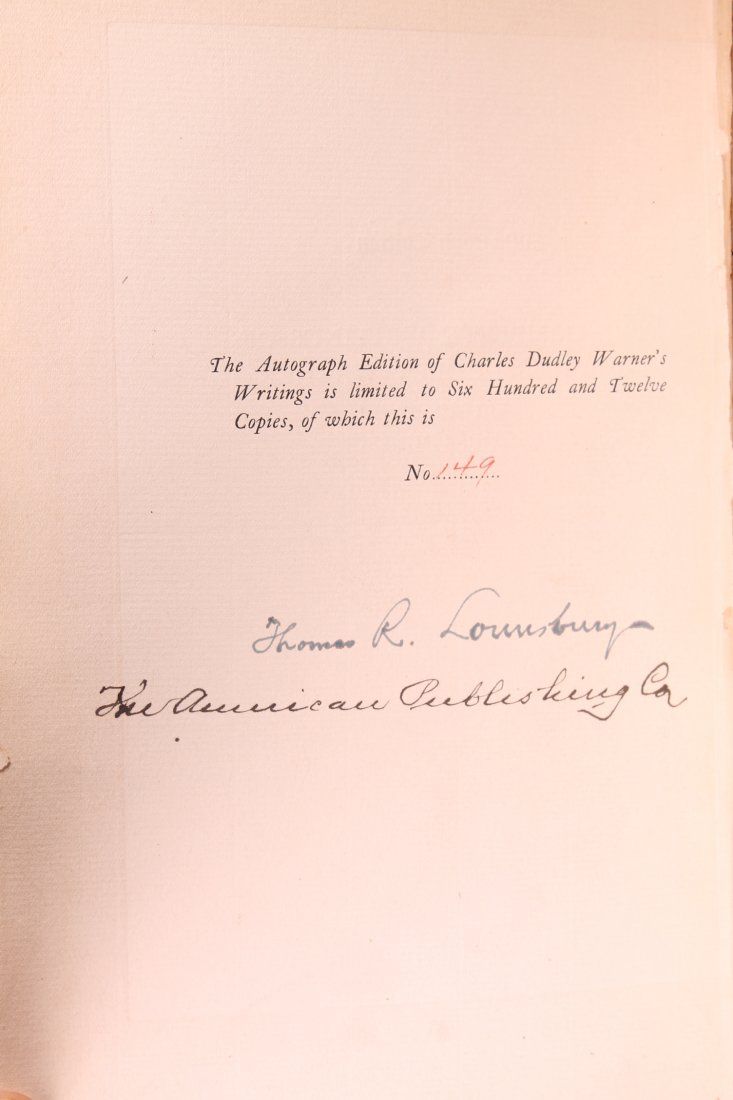 The Autograph Edition of Charles Dudley Warner's
Writings is limited to Six Hundred and Twelve
Copies, of which this is
No. 149
Thomas R. Lounsbury
The American Publishing Co